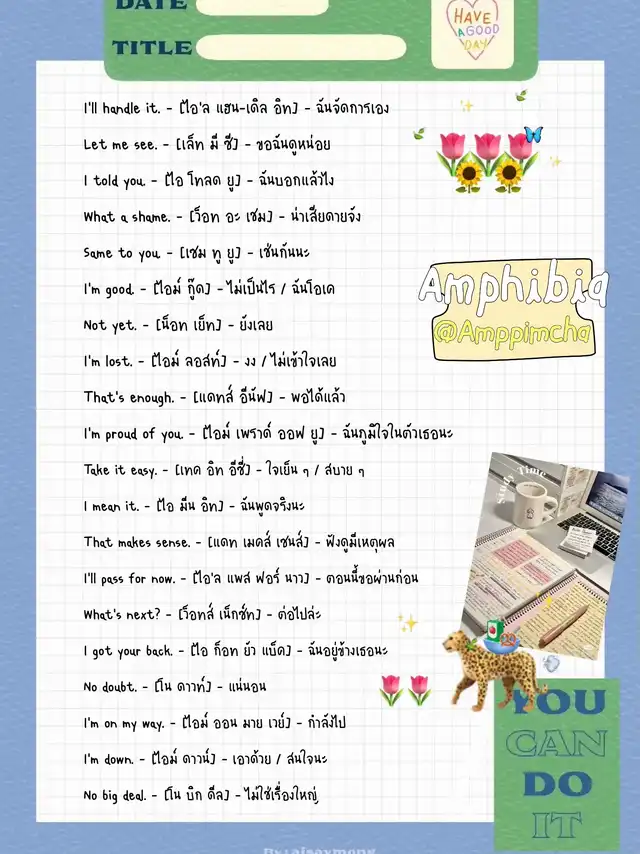 DATE
TITLE
HAVE
A GOOD
DAY
I'll handle it. - [ไอ'ล แฮน-เดิล อิท] - ฉันจัดการเอง
Let me see. - [เล็ท มี ซี] - ขอฉันดูหน่อย
I told you. - [ไอ โทลด ยู] - ฉันบอกแล้วไง
What a shame. - [ว็อท อะ เชม] - น่าเสียดายจัง
Same to you. - [เซม ทู ยู] - เช่นกันนะ
I'm good. - [ไอม์ กู๊ด] - ไม่เป็นไร / ฉันโอเค
Not yet. - [น็อท เย็ท] - ยังเลย
I'm lost. - [ไอม์ ลอสท์] - งง / ไม่เข้าใจเลย
That's enough. - [แดทส์ อีนัฟ] - พอได้แล้ว
I'm proud of you. - [ไอม์ เพราด์ ออฟ ยู] - ฉันภูมิใจในตัวเธอนะ
Take it easy. - [เทค อิท อีซี่] - ใจเย็น ๆ / สบาย ๆ
I mean it. - [ไอ มีน อิท] - ฉันพูดจริงนะ
That makes sense. - [แดท เมคส์ เซนส์] - ฟังดูมีเหตุผล
I'll pass for now. - [ไอ'ล แพส ฟอร์ นาว] - ตอนนี้ขอผ่านก่อน
What's next? - [ว็อทส์ เน็กซ์ท] - ต่อไปล่ะ
I got your back. - [ไอ ก็อท ยัว แบ็ค] - ฉันอยู่ข้างเธอนะ
No doubt. - [โน ดาวท์] - แน่นอน
I'm on my way. - [ไอม์ ออน มาย เวย์] - กำลังไป
I'm down. - [ไอม์ ดาวน์] - เอาด้วย / สนใจนะ
No big deal. - [โน บิก ดีล] - ไม่ใช่เรื่องใหญ่
Amphibia
@Amppimcha
Study Time
YOU
CAN
DO
IT